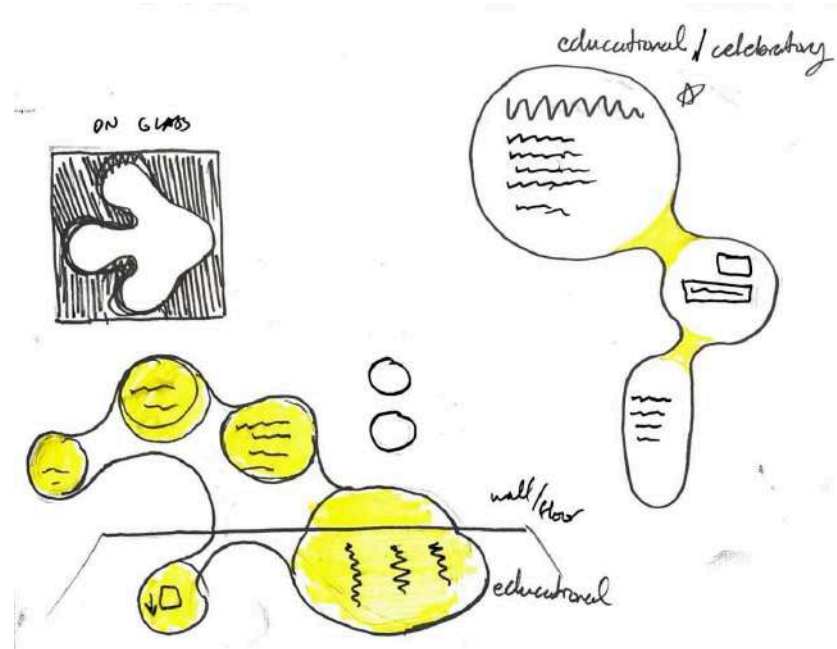 educational / celebratory
ON GLASS
wall/floor
educational